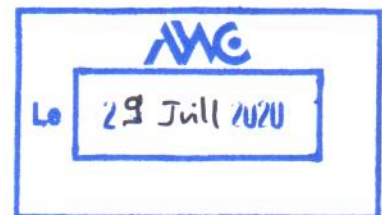 AWC
Le 29 Juill 2020